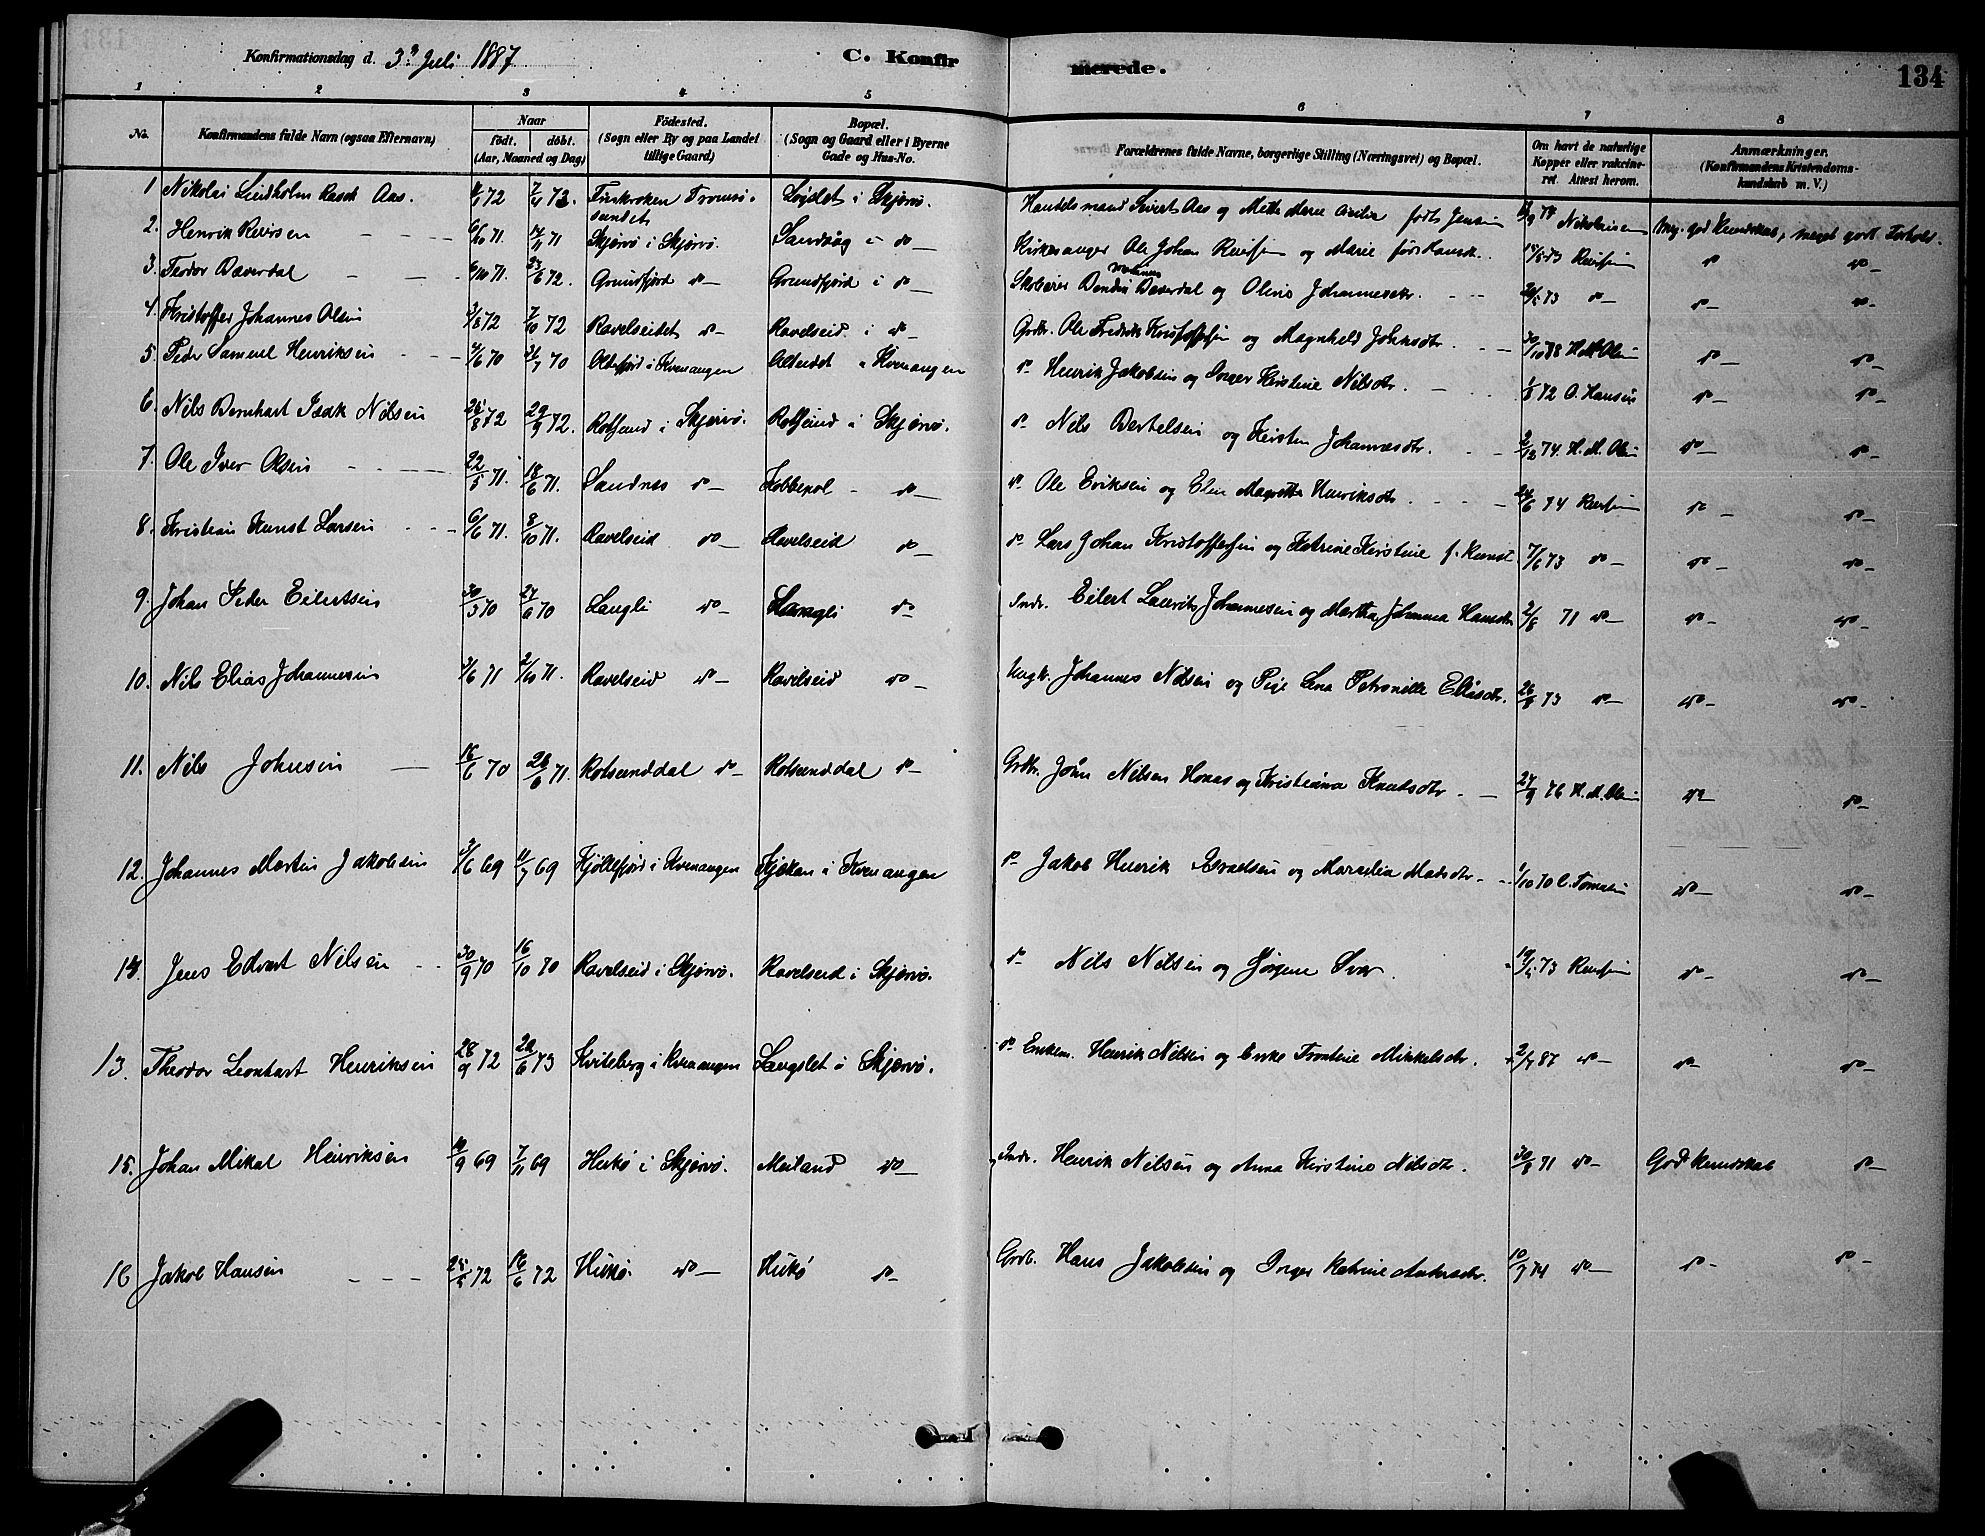 Konfirmationsdag d. 3die Juli 1887 C. Konfirmerede. 134
1 2 3 4 5 6 7 8
No. Konfirmandens fulde Navn (ogsaa Efternavn) Naar födt. döbt. (Aar, Maaned og Dag) Födested. (Sogn eller By og paa Landet tillige Gaard) Bopæl. (Sogn og Gaard eller i Byerne Gade og Hus-No. Forældrenes fulde Navne, borgerlige Stilling (Næringsvei) og Bopæl. Om havt de naturlige Kopper eller vakcineret. Attest herom. Anmærkninger. (Konfirmandens Kristendomskundskab m. V.)
1 Nikolai Lindholm Rasch Aas. 72 73. Finkroken Tromsøsundet i Skjervø. Handelsmand Sivert Aas og Mette Marie født Jensen Nikolaisen Mg. god Kundskab, meget godt Forhold.
2. Henrik Reiersen 6/10 71. 71 Skjervø i Skjervø. Sandvåg i do Kirkesanger Ole Johan Reiersen og Marie 73 Reiersen do do
3. Teodor Bæverdal 6/10 71. 23/6 72. Grundfjord do Grundfjord i do Skolelærer Bæverdal og Oline Johannesdtr. 73 do do do
4. Kristoffer Johannes Olsen 3/8 72 7/10 72 Ravelseidet do Ravelseid i do Grdbr. Ole Fredrik Kristoffersen og Magnhild Johnsdtr. H.M. Olsen do do
5. Peder Samuel Henriksen 70 70 i Kvenangen Alteidet i Kvenangen do Henrik Jakobsen og Inger Kirstine Nilsdtr. 72 O. Hansen do do
6. Nils Bernhart Nilsen 25/8 72 29/9 72. Rotsund i Skjervø. Rotsund i Skjervø. do Nils Bertelsen og Kirsten Johannesdtr. 2/12 74. H. M. Olsen do do
7. Ole Iver Olsen 22/5 71. 18/6 71. Sandnes do Kobbepol do do Ole Eriksen og Elen Margrethe Henriksdtr. 24/6 74 Reiersen do do
8. Kristian Kunst Larsen 6/6 71. 8/10 71. Ravelseid do Ravelseid do do Lars Johan Kristoffersen og Katrine Kirstine f. Kunst. 7/6 73 do do do
9. Johan Peder Eilertsen 30/3 70 27/6 70 Langli do Langli do Indr. Eilert Laurits Johannesen og Martha Johanna Hansdtr 2/8 71 do do do
10. Nils Elias Johannesen 3/6 71 2/10 71. Ravelseid do Ravelseid do Johannes Nilsen og Pige Lena Petronelle Eliasdtr. 26/8 73 do do do
11. Nils Johnsen 16/6 70 26/6 71. Rotsunddal do Rotsunddal do Grdbr. John Nilsen Honas og Kristiana Knutsdtr. 27/9 76 H. M. Olsen do do
12. Johannes Martin Jakobsen 3/6 69 11/7 69 Kjøllefjord i Kvenangen Kjækan i Kvenangen do Jakob Henrik Israelsen og Marselia Madsdtr. 1/10 70 C. Tomasen do do
14. Jens Edvart Nilsen 30/9 70 16/10 70 Ravelseid i Skjervø. Ravelseid i Skjervø. do Nils Nilsen og Jørgine 73 Reiersen do do
13. Theodor Leonhart Henriksen 28/9 72 22/6 73 Kviteberg i Kvenangen Langslet i Skjervø. do Enkem. Henrik Nilsen og Berke Frontine Mikkelsdtr. 2/7 87 do do do
15. Johan Mikal Henriksen 10/9 69 7/11 69 Hukø i Skjervø. Meiland do Indr. Henrik Nilsen og Anna Kirstine Nilsdtr. 30/8 71 do God Kundskab do
16 Jakob Hansen 72 16/6 72 Hukø. do Hukø do Grdb. Hans Jakobsen og Inger Katrine Andersdtr. 10/9 74 do do do